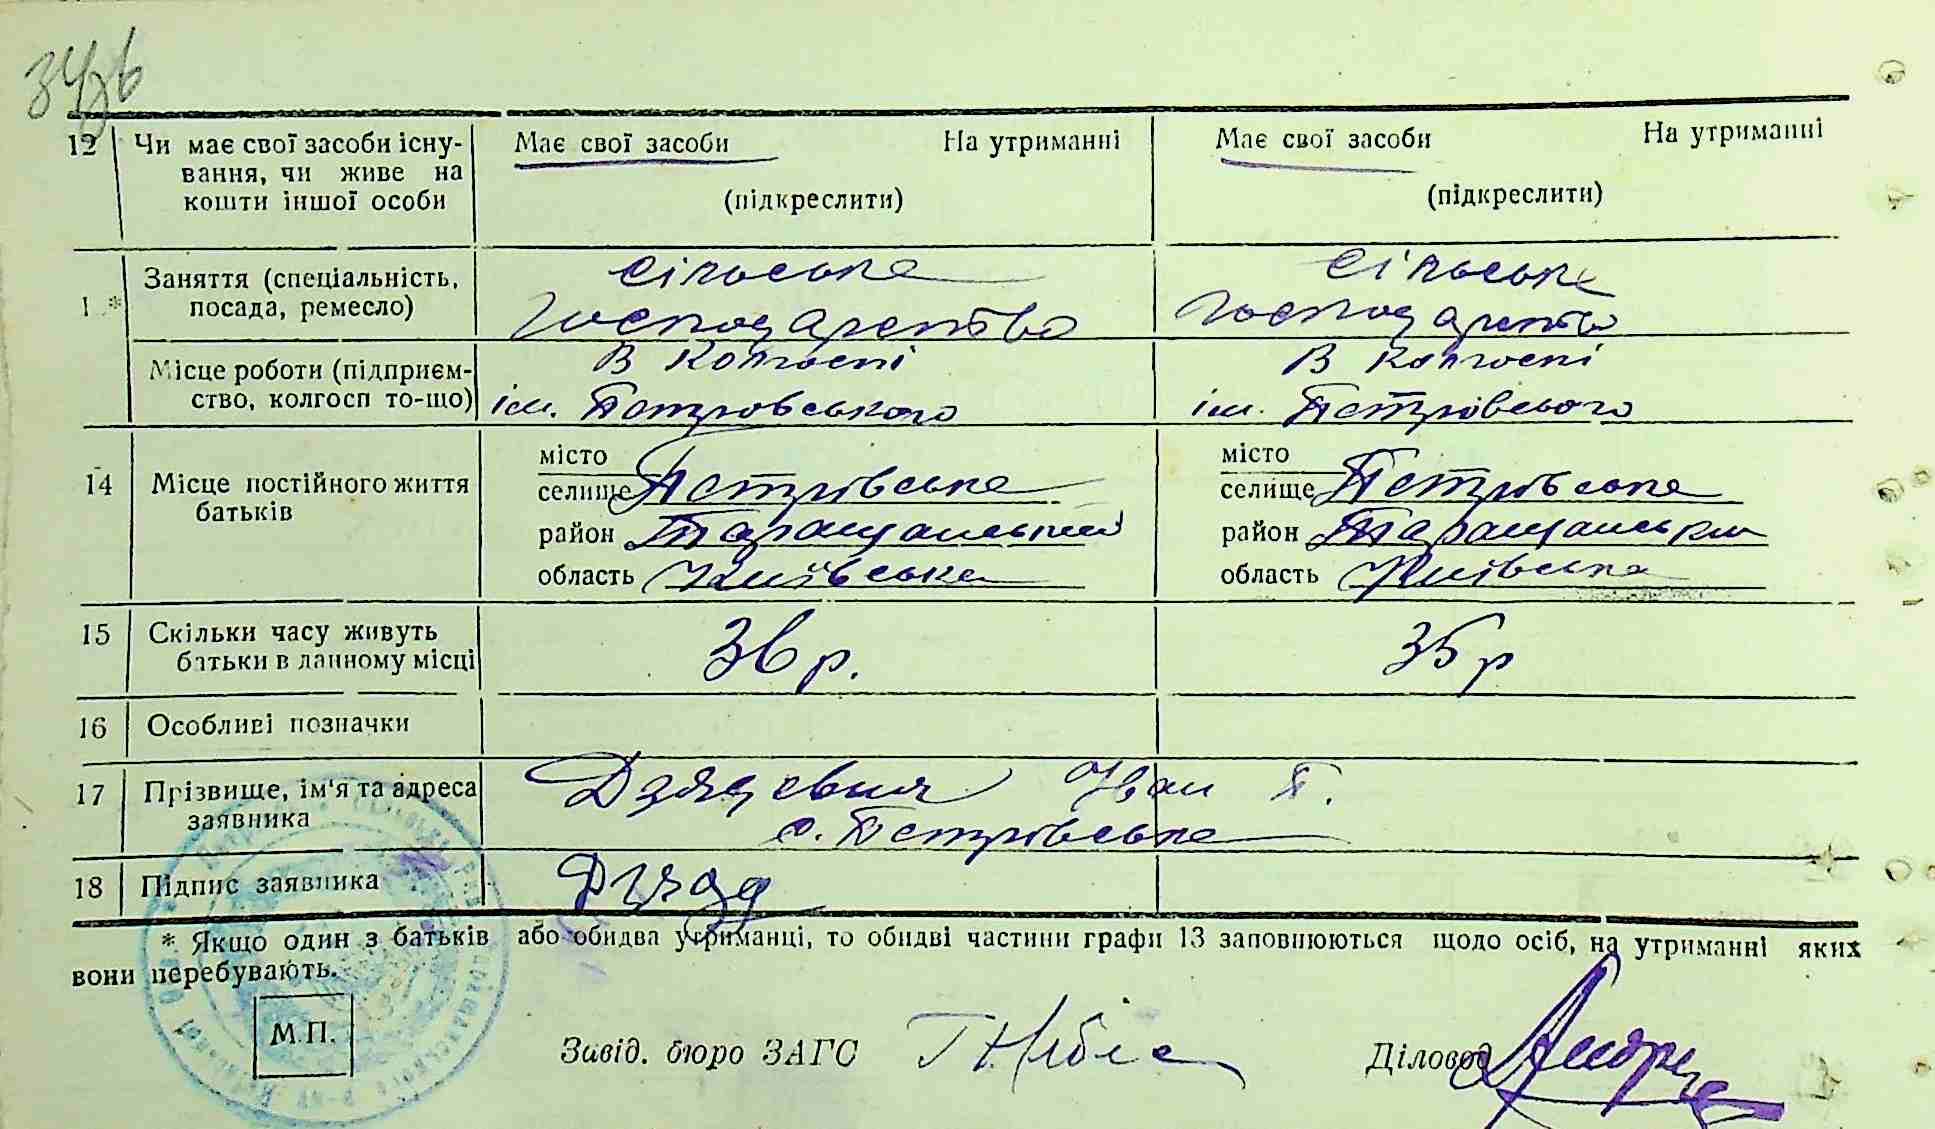 12 Чи має свої засоби існу- Має свої засоби На утриманні Має свої засоби На утриманні
вання, чи живе на
кошти іншої особи (підкреслити) (підкреслити)
1 * Заняття (спеціальність, сільське сільське
посада, ремесло) господарство господарство
Місце роботи (підприєм- В колгоспі В колгоспі
ство, колгосп то-що) ім. Петровського ім. Петрівсього
14 Місце постійного життя місто місто
батьків селище Петрівське селище Петрівське
район Таращанський район Таращанський
область Київська область Київська
15 Скільки часу живуть 36 р. 35 р
батьки в данному місці
16 Особливі позначки
17 Прізвище, ім'я та адреса Дзядевич Іван П.
заявника с. Петрівське
18 Підпис заявника Дзяд
* Якщо один з батьків або обидва утриманці, то обидві частини графи 13 заповнюються щодо осіб, на утриманні яких
вони перебувають.
М.П. Завід. бюро ЗАГС Діловод